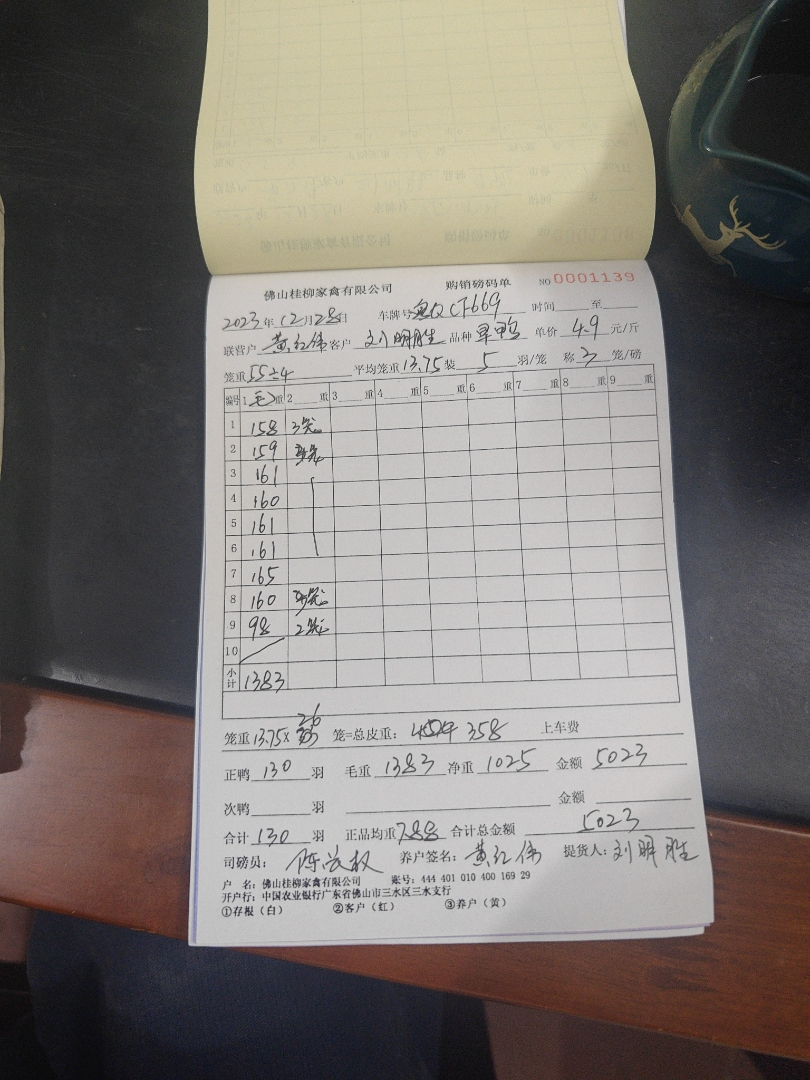 佛山桂柳家禽有限公司 购销磅码单 NO 0001139
2023年12月28日 车牌号 CF669 时间 至
联营户 黄红伟 客户 刘明胜 品种 单价 4.9 元/斤
笼重 55÷4 平均笼重 13.75 装 5 羽/笼 称 3 笼/磅
编号 1 毛 重 2 重 3 重 4 重 5 重 6 重 7 重 8 重 9 重
1 158 3笼
2 159
3 161
4 160
5 161
6 161
7 165
8 160
9 98 2笼
10
小计 1383
26
笼重 13.75× 笼=总皮重: 358 上车费
正鸭 130 羽 毛重 1383 净重 1025 金额 5023
次鸭 羽 金额
合计 130 羽 正品均重 7.88 合计总金额 5023
司磅员: 养户签名: 黄红伟 提货人: 刘明胜
户 名: 佛山桂柳家禽有限公司 账号: 444 401 010 400 169 29
开户行: 中国农业银行广东省佛山市三水区三水支行
①存根(白) ②客户(红) ③养户(黄)